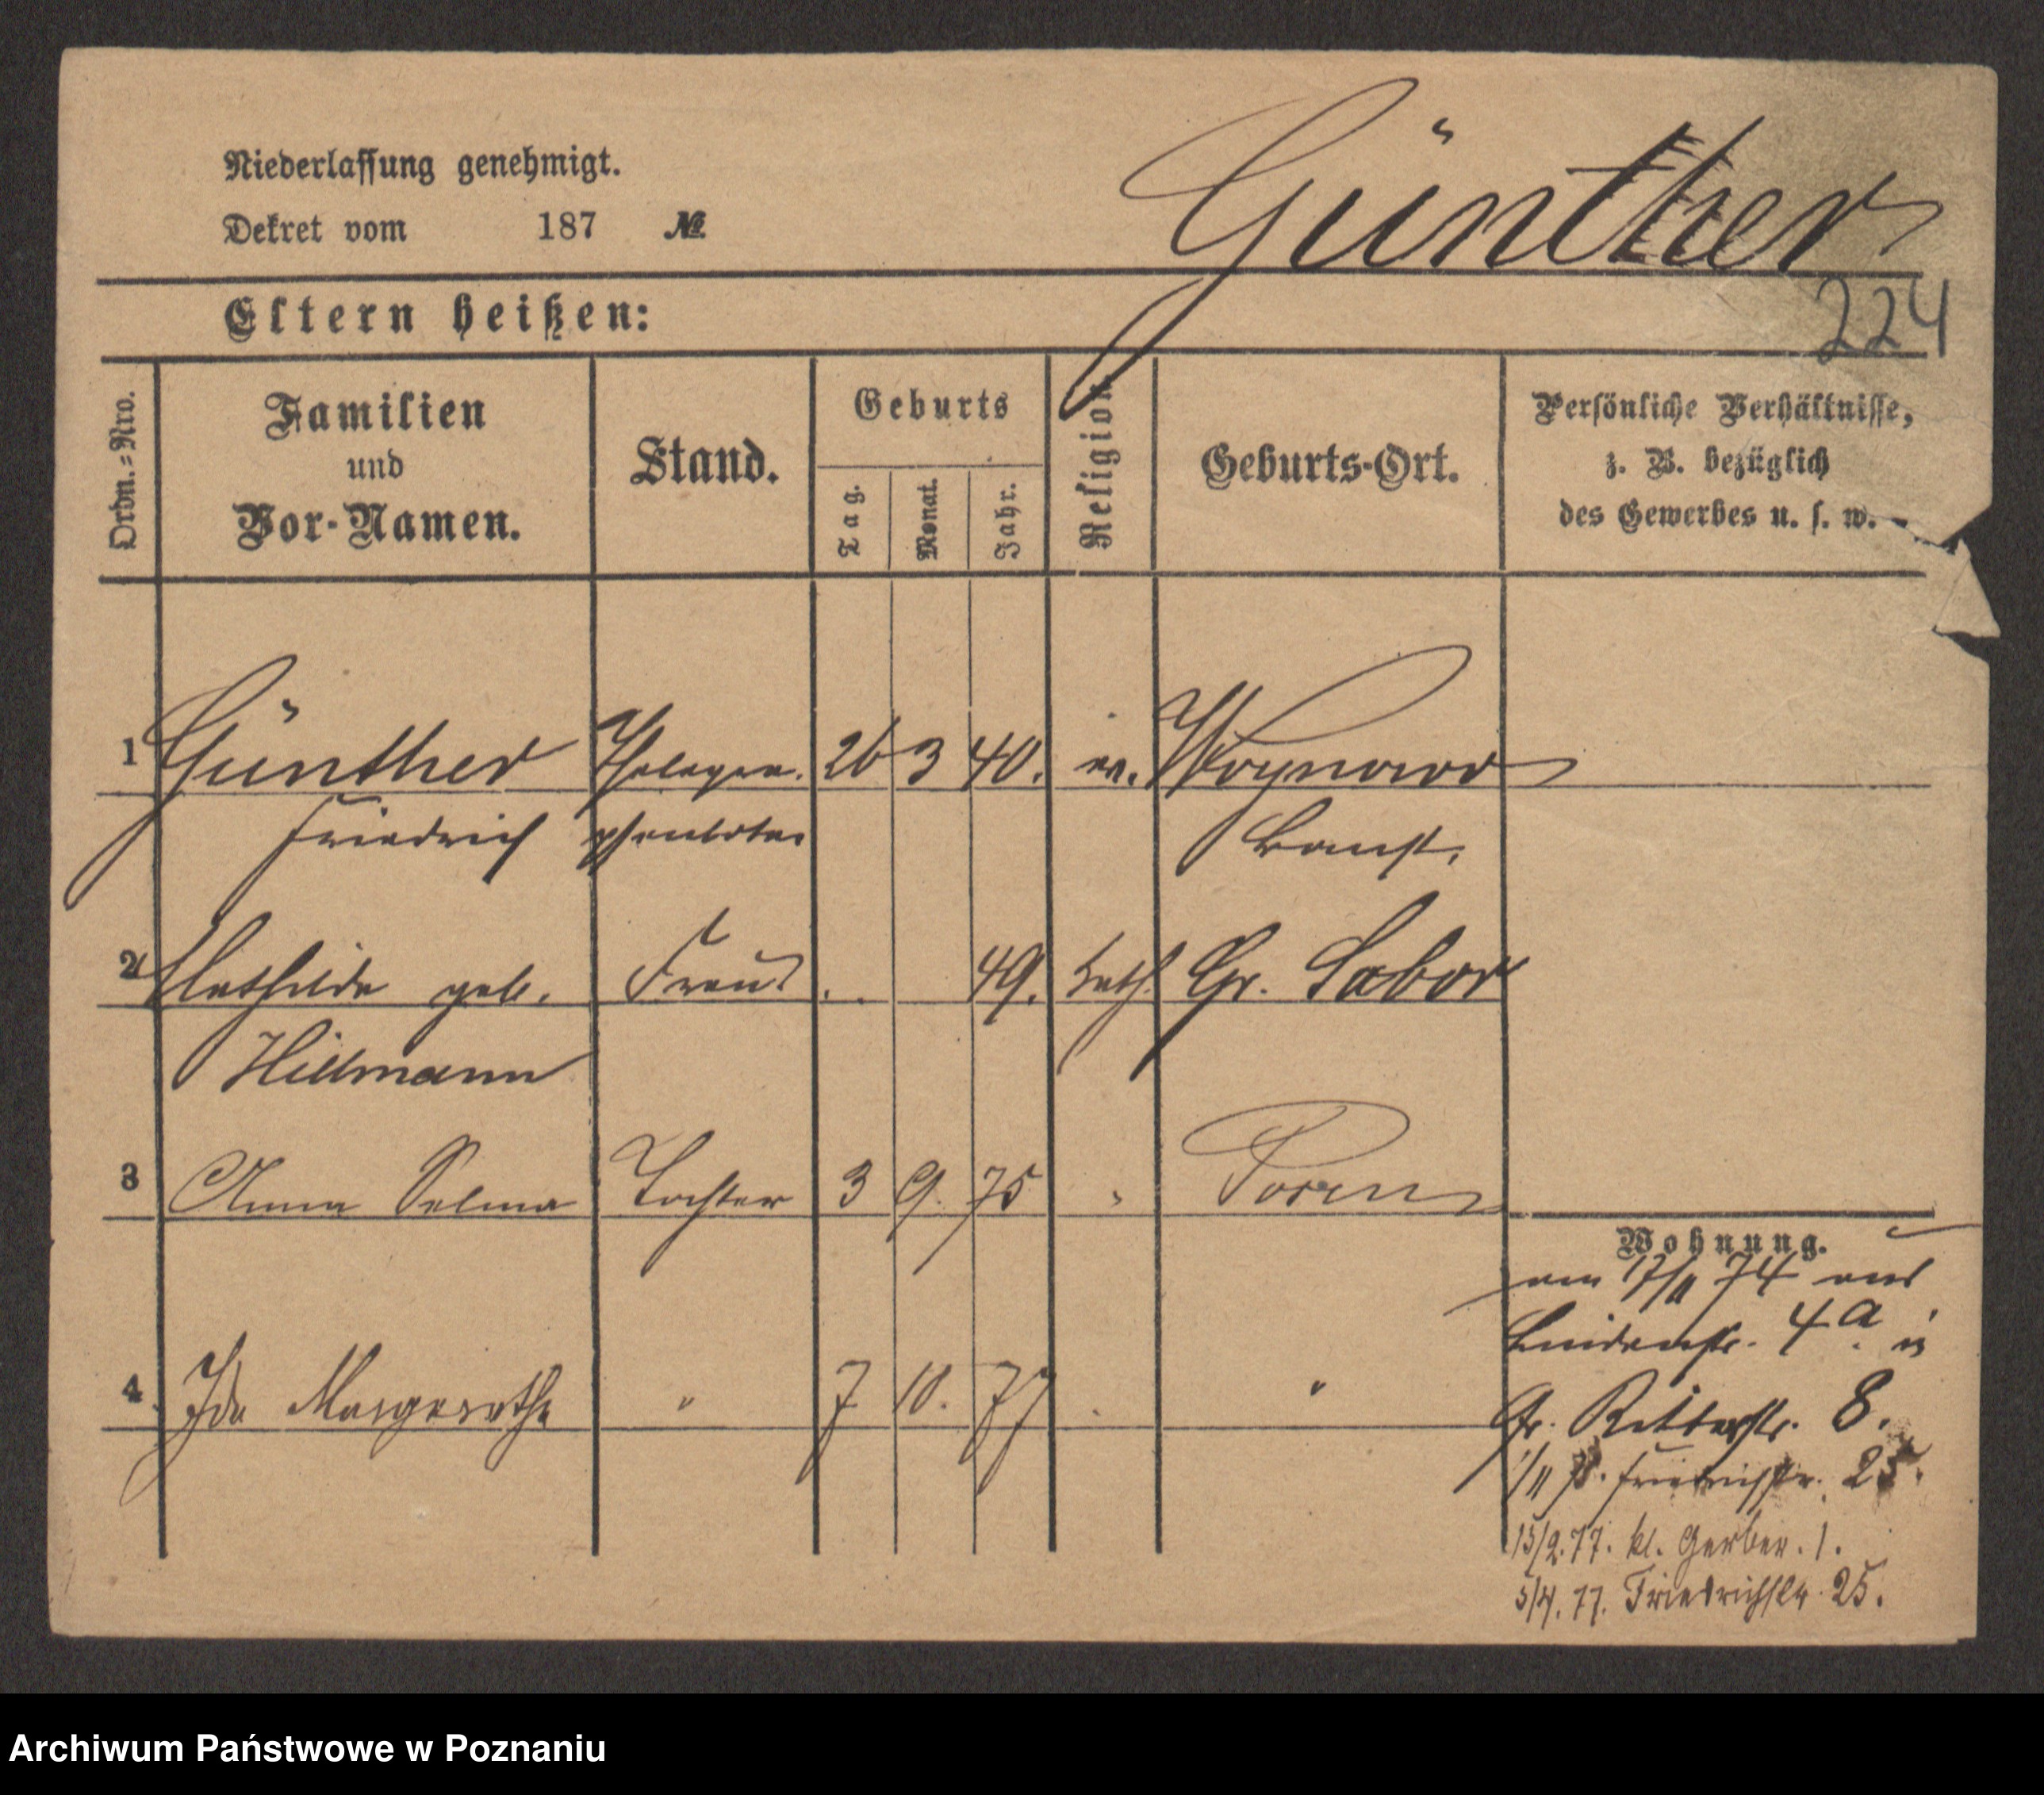 Niederlassung genehmigt.
Dekret vom 187 №
Günther
224
Eltern heißen:
Ordn.=Nro.
Familien
und
Vor-Namen.
Stand.
Geburts
Tag.
Monat.
Jahr.
Religion
Geburts-Ort.
Persönliche Verhältnisse,
z. B. bezüglich
des Gewerbes u. s. w.
1 Günther 26 3 40. ev.
Friedrich
2 Mathilde geb. Frau 49. kath. Gr.
Hillmann
3 Anna Selma Tochter 3 9. 75 " Posen
4 Ida Margarethe " 7 10. 77 "
Wohnung.
am 17/11 74 aus
Lindenstr. 4a. in
Gr. Ritterstr. 8.
Friedrichstr. 25.
15/2.77. kl. Gerber. 1.
5/4. 77. Friedrichstr. 25.
Archiwum Państwowe w Poznaniu